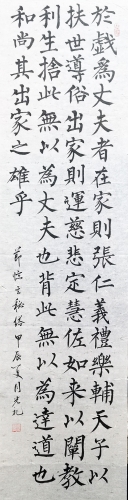 於戲為丈夫者在家則張仁義禮樂輔天子以
扶世導俗出家則運慈悲定慧佐如來以闡教
利生捨此無以為丈夫也背此無以為達道也
和尚其出家之雄乎
節临玄秘塔 甲辰夏月